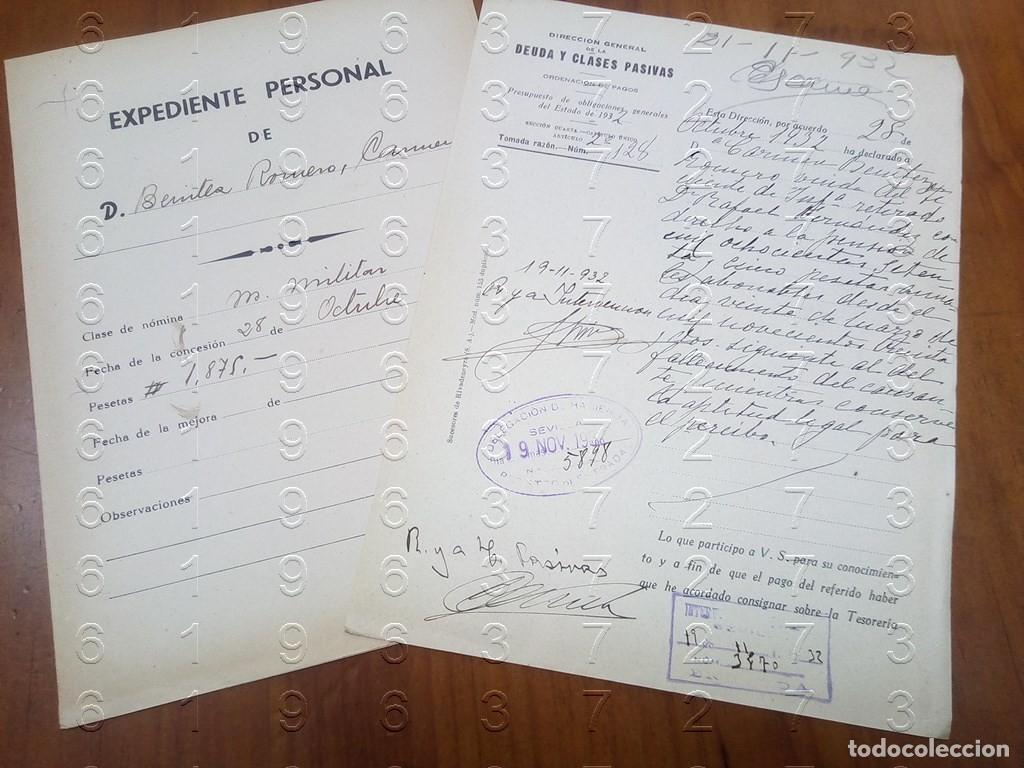 EXPEDIENTE PERSONAL
DE
D. Benitez Romero, Carmen
Clase de nómina M. Militar
Fecha de la concesión 28 de Octubre
Pesetas # 1,875,-
Fecha de la mejora de
Pesetas
Observaciones
DIRECCION GENERAL
DE LA
DEUDA Y CLASES PASIVAS
ORDENACION DE PAGOS
Presupuesto de obligaciones generales
del Estado de 1932
SECCIÓN CUARTA.-CAPÍTULO ÚNICO
ARTÍCULO 2º
Tomada razón.-Núm. 128
21-11-932
Esta Dirección, por acuerdo 28 de
Octubre 1932 ha declarado a
D.ª Carmen Benitez
Romero viuda del Te
niente de Infª retirado
D. Rafael Hernandez con
derecho a la pension de
mil ochocientas seten
ta cinco pesetas anua
les abonables desde el
dia veinte de Marzo de
mil novecientos treinta
y dos, siguiente al del
fallecimiento del causan
te mientras conserve
la aptitud legal para
el percibo.
19-11-932
R. y a Intervencion
Sucesores de Rivadeneyra (S. A.)
DELEGACIÓN DE HACIENDA
SEVILLA
19 NOV. 19
5898
R. y a Cl. Pasivas
Lo que participo a V. S. para su conocimien-
to y a fin de que el pago del referido haber
que he acordado consignar sobre la Tesorería
19 11 32
3970
6 1 9 6 3 7 2 7 3
todocoleccion